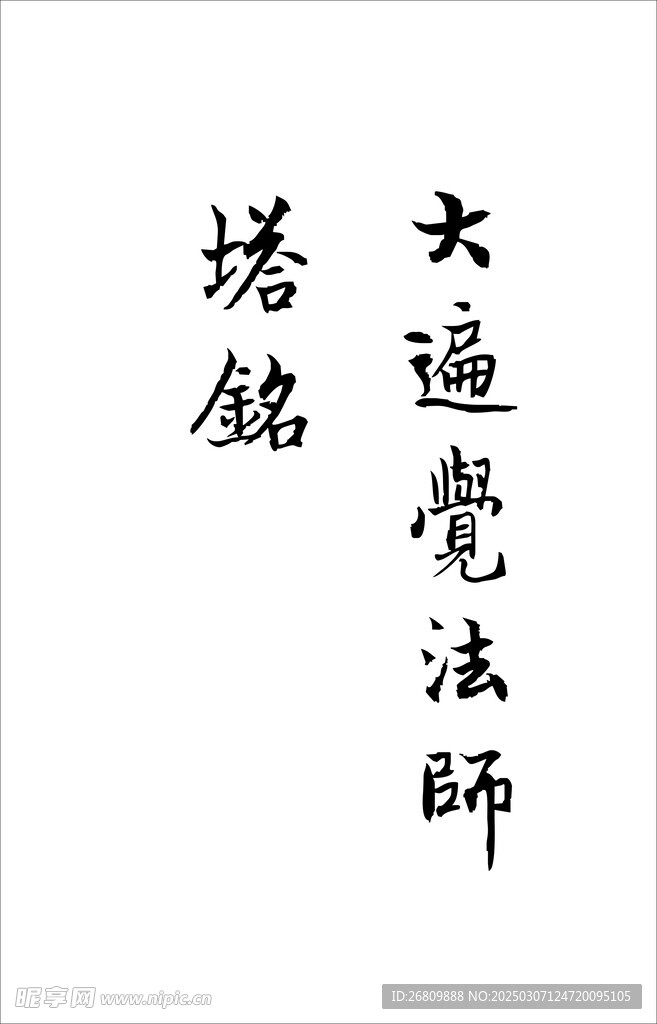 大遍覺法師
塔銘
昵享网 www.nipic.cn
ID:26809888 NO:20250307124720095105